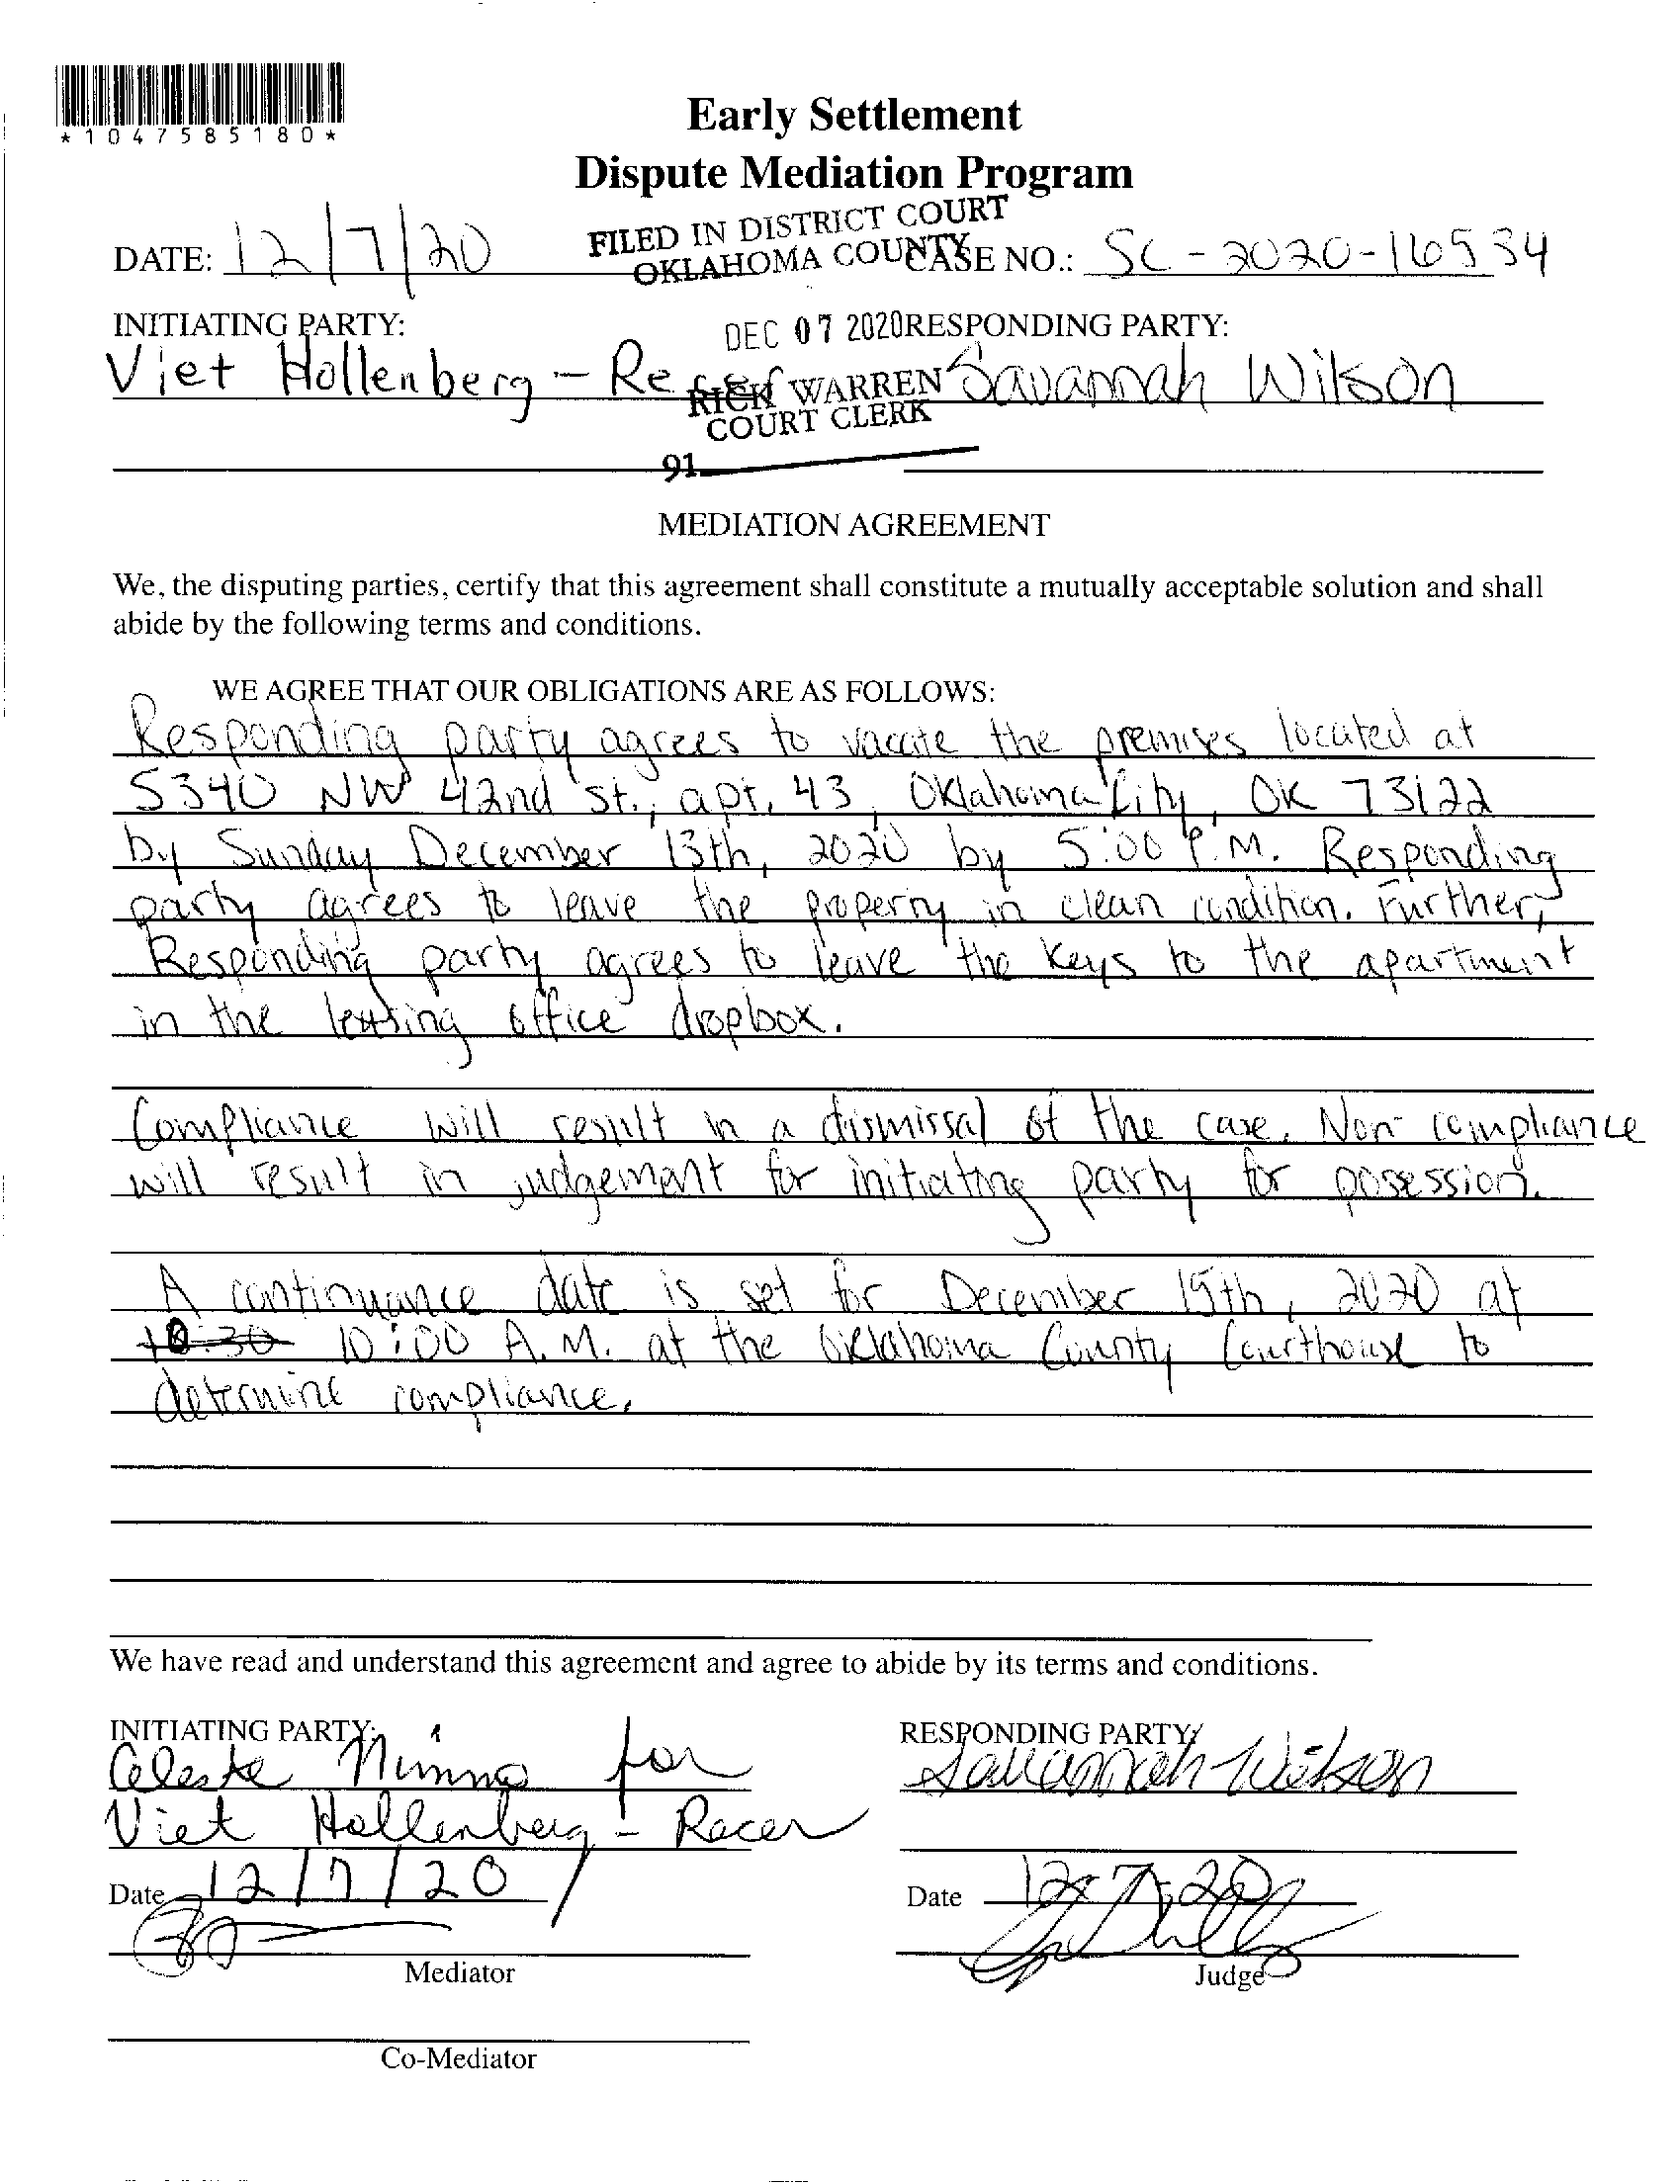 *1047585180*
Early Settlement
Dispute Mediation Program
FILED IN DISTRICT COURT
OKLAHOMA COUNTY
DATE: 12/7/20 CASE NO.: SC-2020-16534
INITIATING PARTY: DEC 07 2020 RESPONDING PARTY:
Viet Hollenberg - Savannah Wilson
RICK WARREN
COURT CLERK
91
MEDIATION AGREEMENT
We, the disputing parties, certify that this agreement shall constitute a mutually acceptable solution and shall
abide by the following terms and conditions.
WE AGREE THAT OUR OBLIGATIONS ARE AS FOLLOWS:
Responding party agrees to vacate the premises located at
5340 NW 42nd st., apt. 43, Oklahoma City, OK 73122
by Sunday December 13th, 2020 by 5:00 P.M. Responding
party agrees to leave the property in clean condition. Further,
Responding party agrees to leave the keys to the apartment
in the leasing office dropbox.
Compliance will result in a dismissal of the case. Non-compliance
will result in judgement for initiating party for posession.
A continuance date is set for December 15th, 2020 at
10:30 10:00 A.M. at the Oklahoma County Courthouse to
determine compliance.
We have read and understand this agreement and agree to abide by its terms and conditions.
INITIATING PARTY: RESPONDING PARTY:
Celeste Nimmo for Savannah Wilson
Viet Hollenberg - Racer
Date 12/7/20 Date 12-7-20
Mediator Judge
Co-Mediator